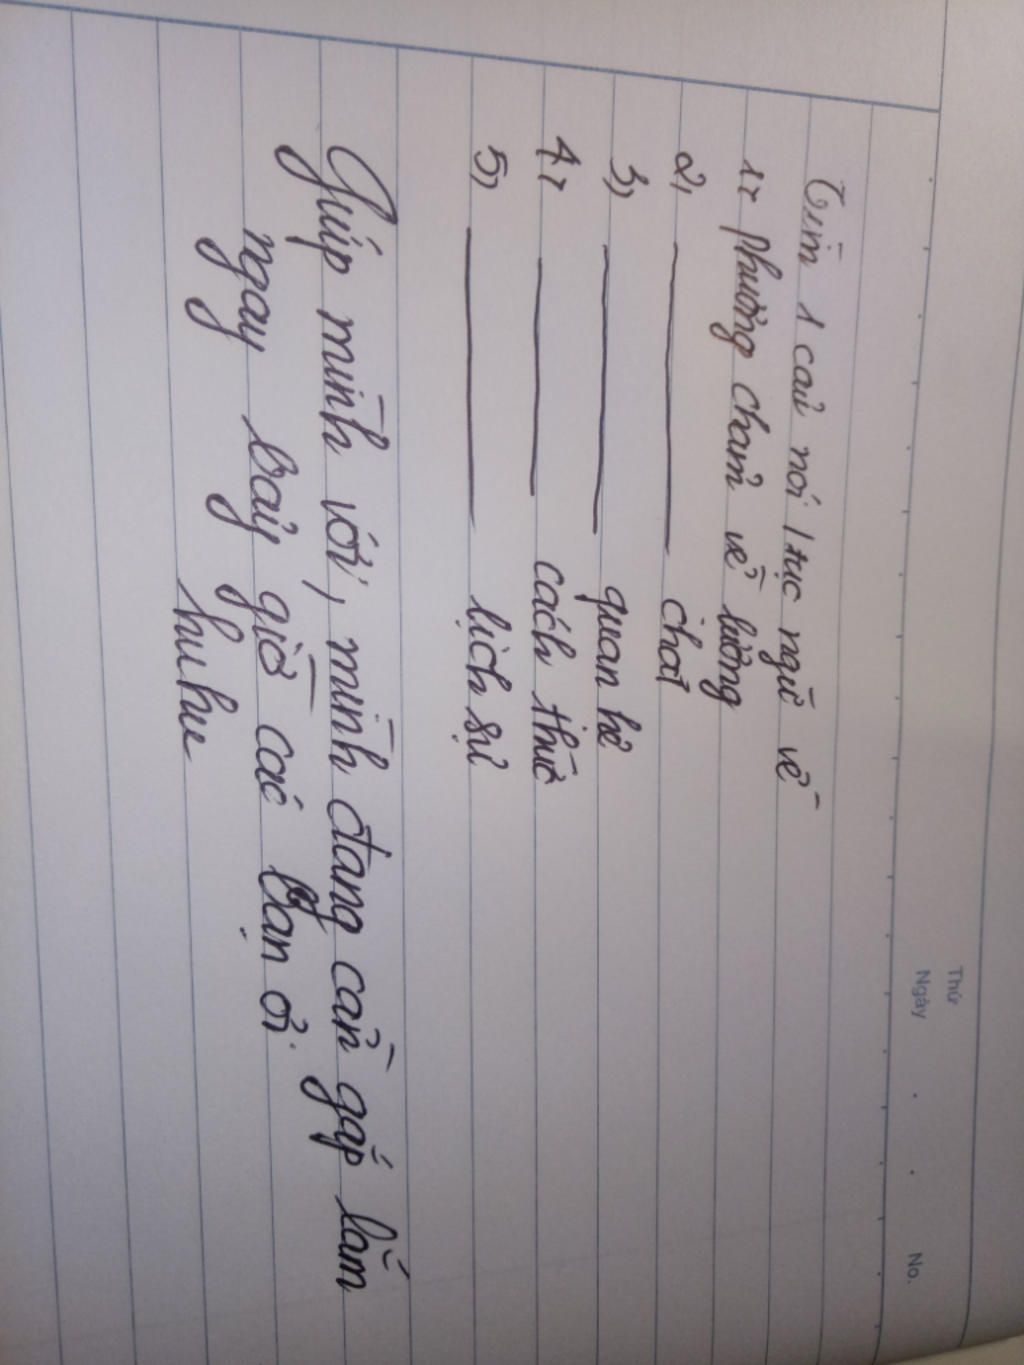 Thứ
Ngày . . No.
Tìm 1 câu nói / tục ngữ về
1, phương châm về lượng
2, ——— chất
3, ——— quan hệ
4, ——— cách thức
5, ——— lịch sự
Giúp mình với, mình đang cần gấp lắm
ngay bây giờ các bạn ơi.
hu hu